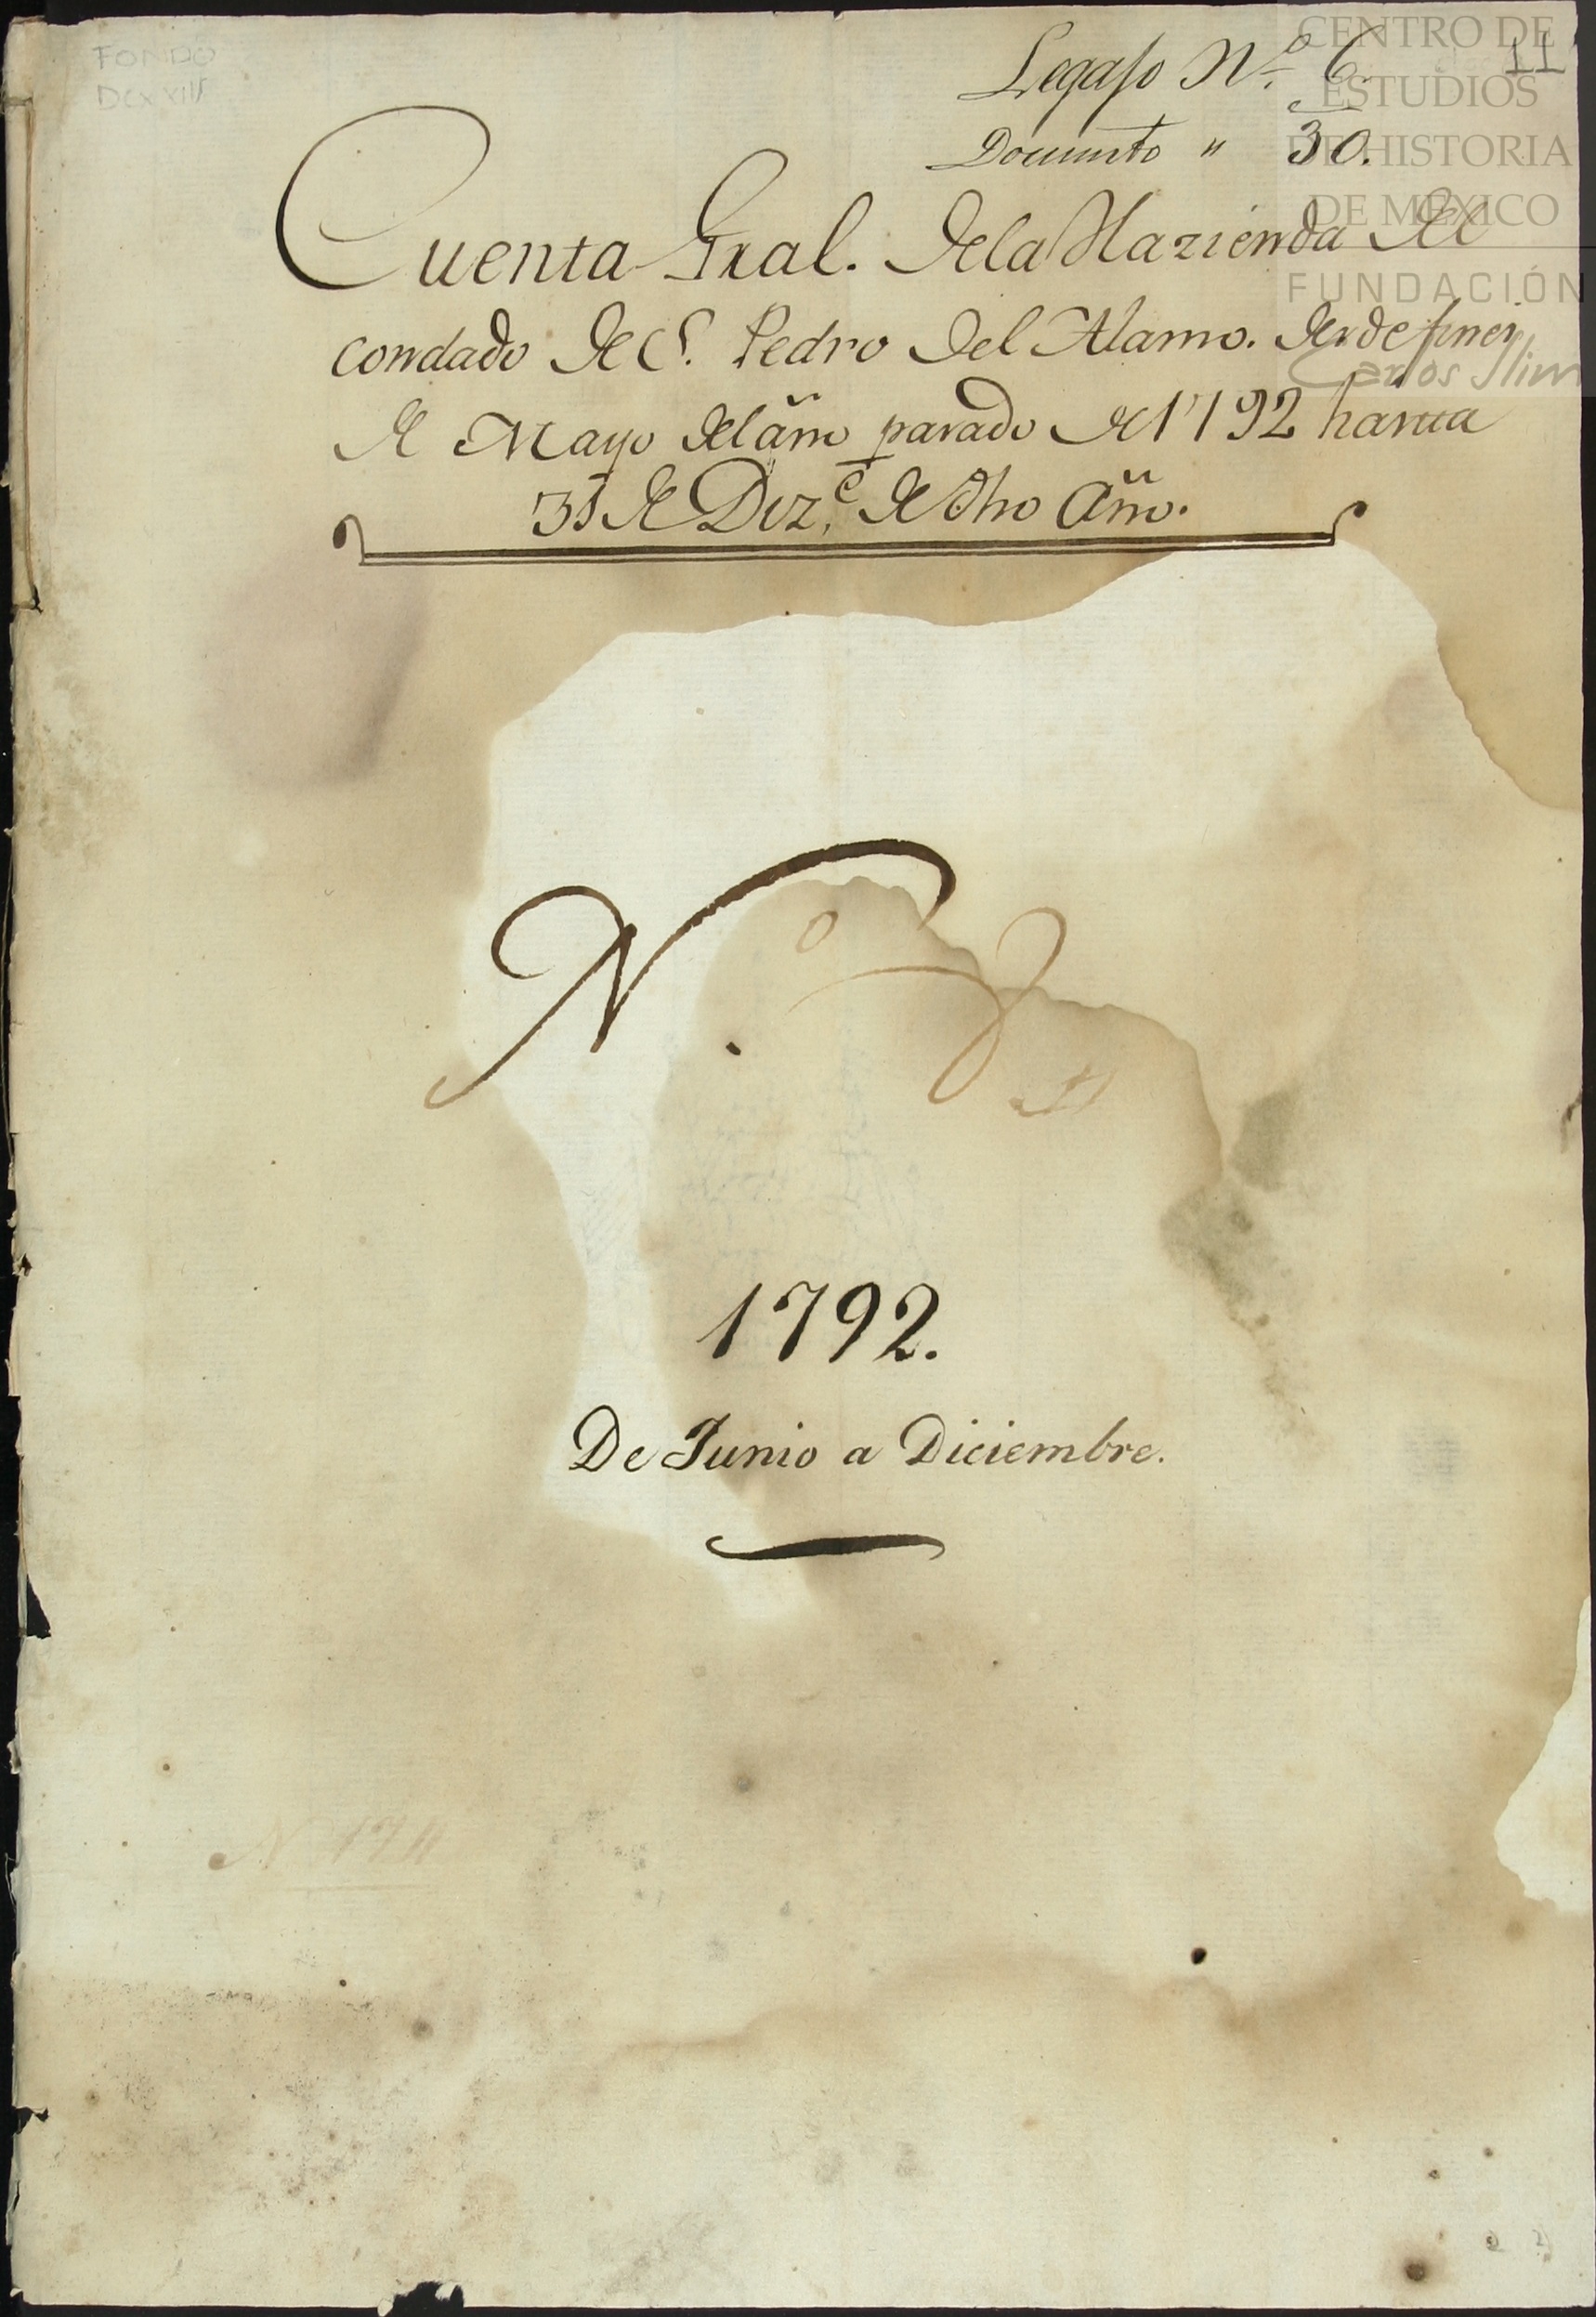 FONDO
DCXXIII
Legajo N.º 6.
11
Documto " 30.
CENTRO DE
ESTUDIOS
DE HISTORIA
DE MEXICO
FUNDACIÓN
Carlos Slim
Cuenta Gral. dela Hazienda del
condado de S. Pedro del Alamo. desde fines
de Mayo del año pasado de 1792 hasta
31 de Diz.e de dho Año.
N. o
1792.
De Junio a Diciembre.